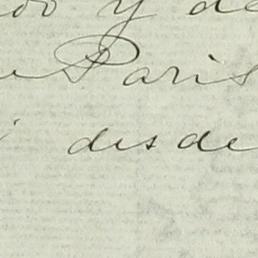 y de
Paris
desde